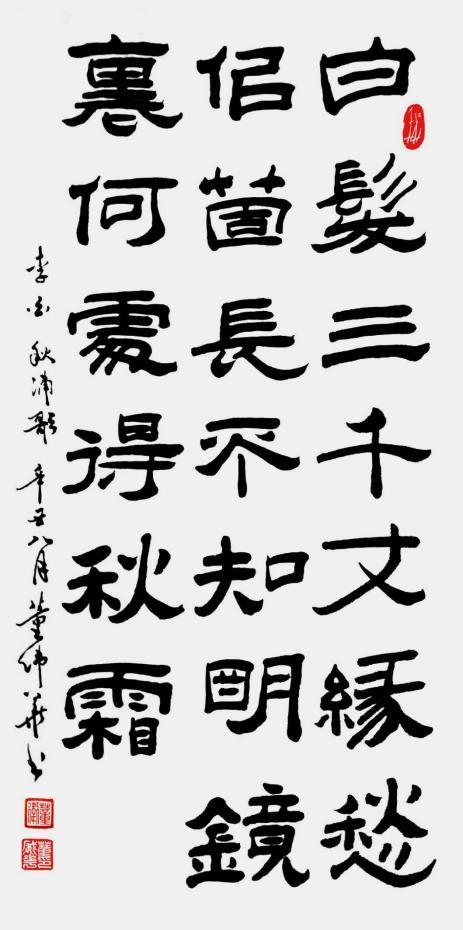 白髮三千丈緣愁
侶箇長不知明鏡
裏何處得秋霜
李白秋浦歌 辛丑八月董偉華書